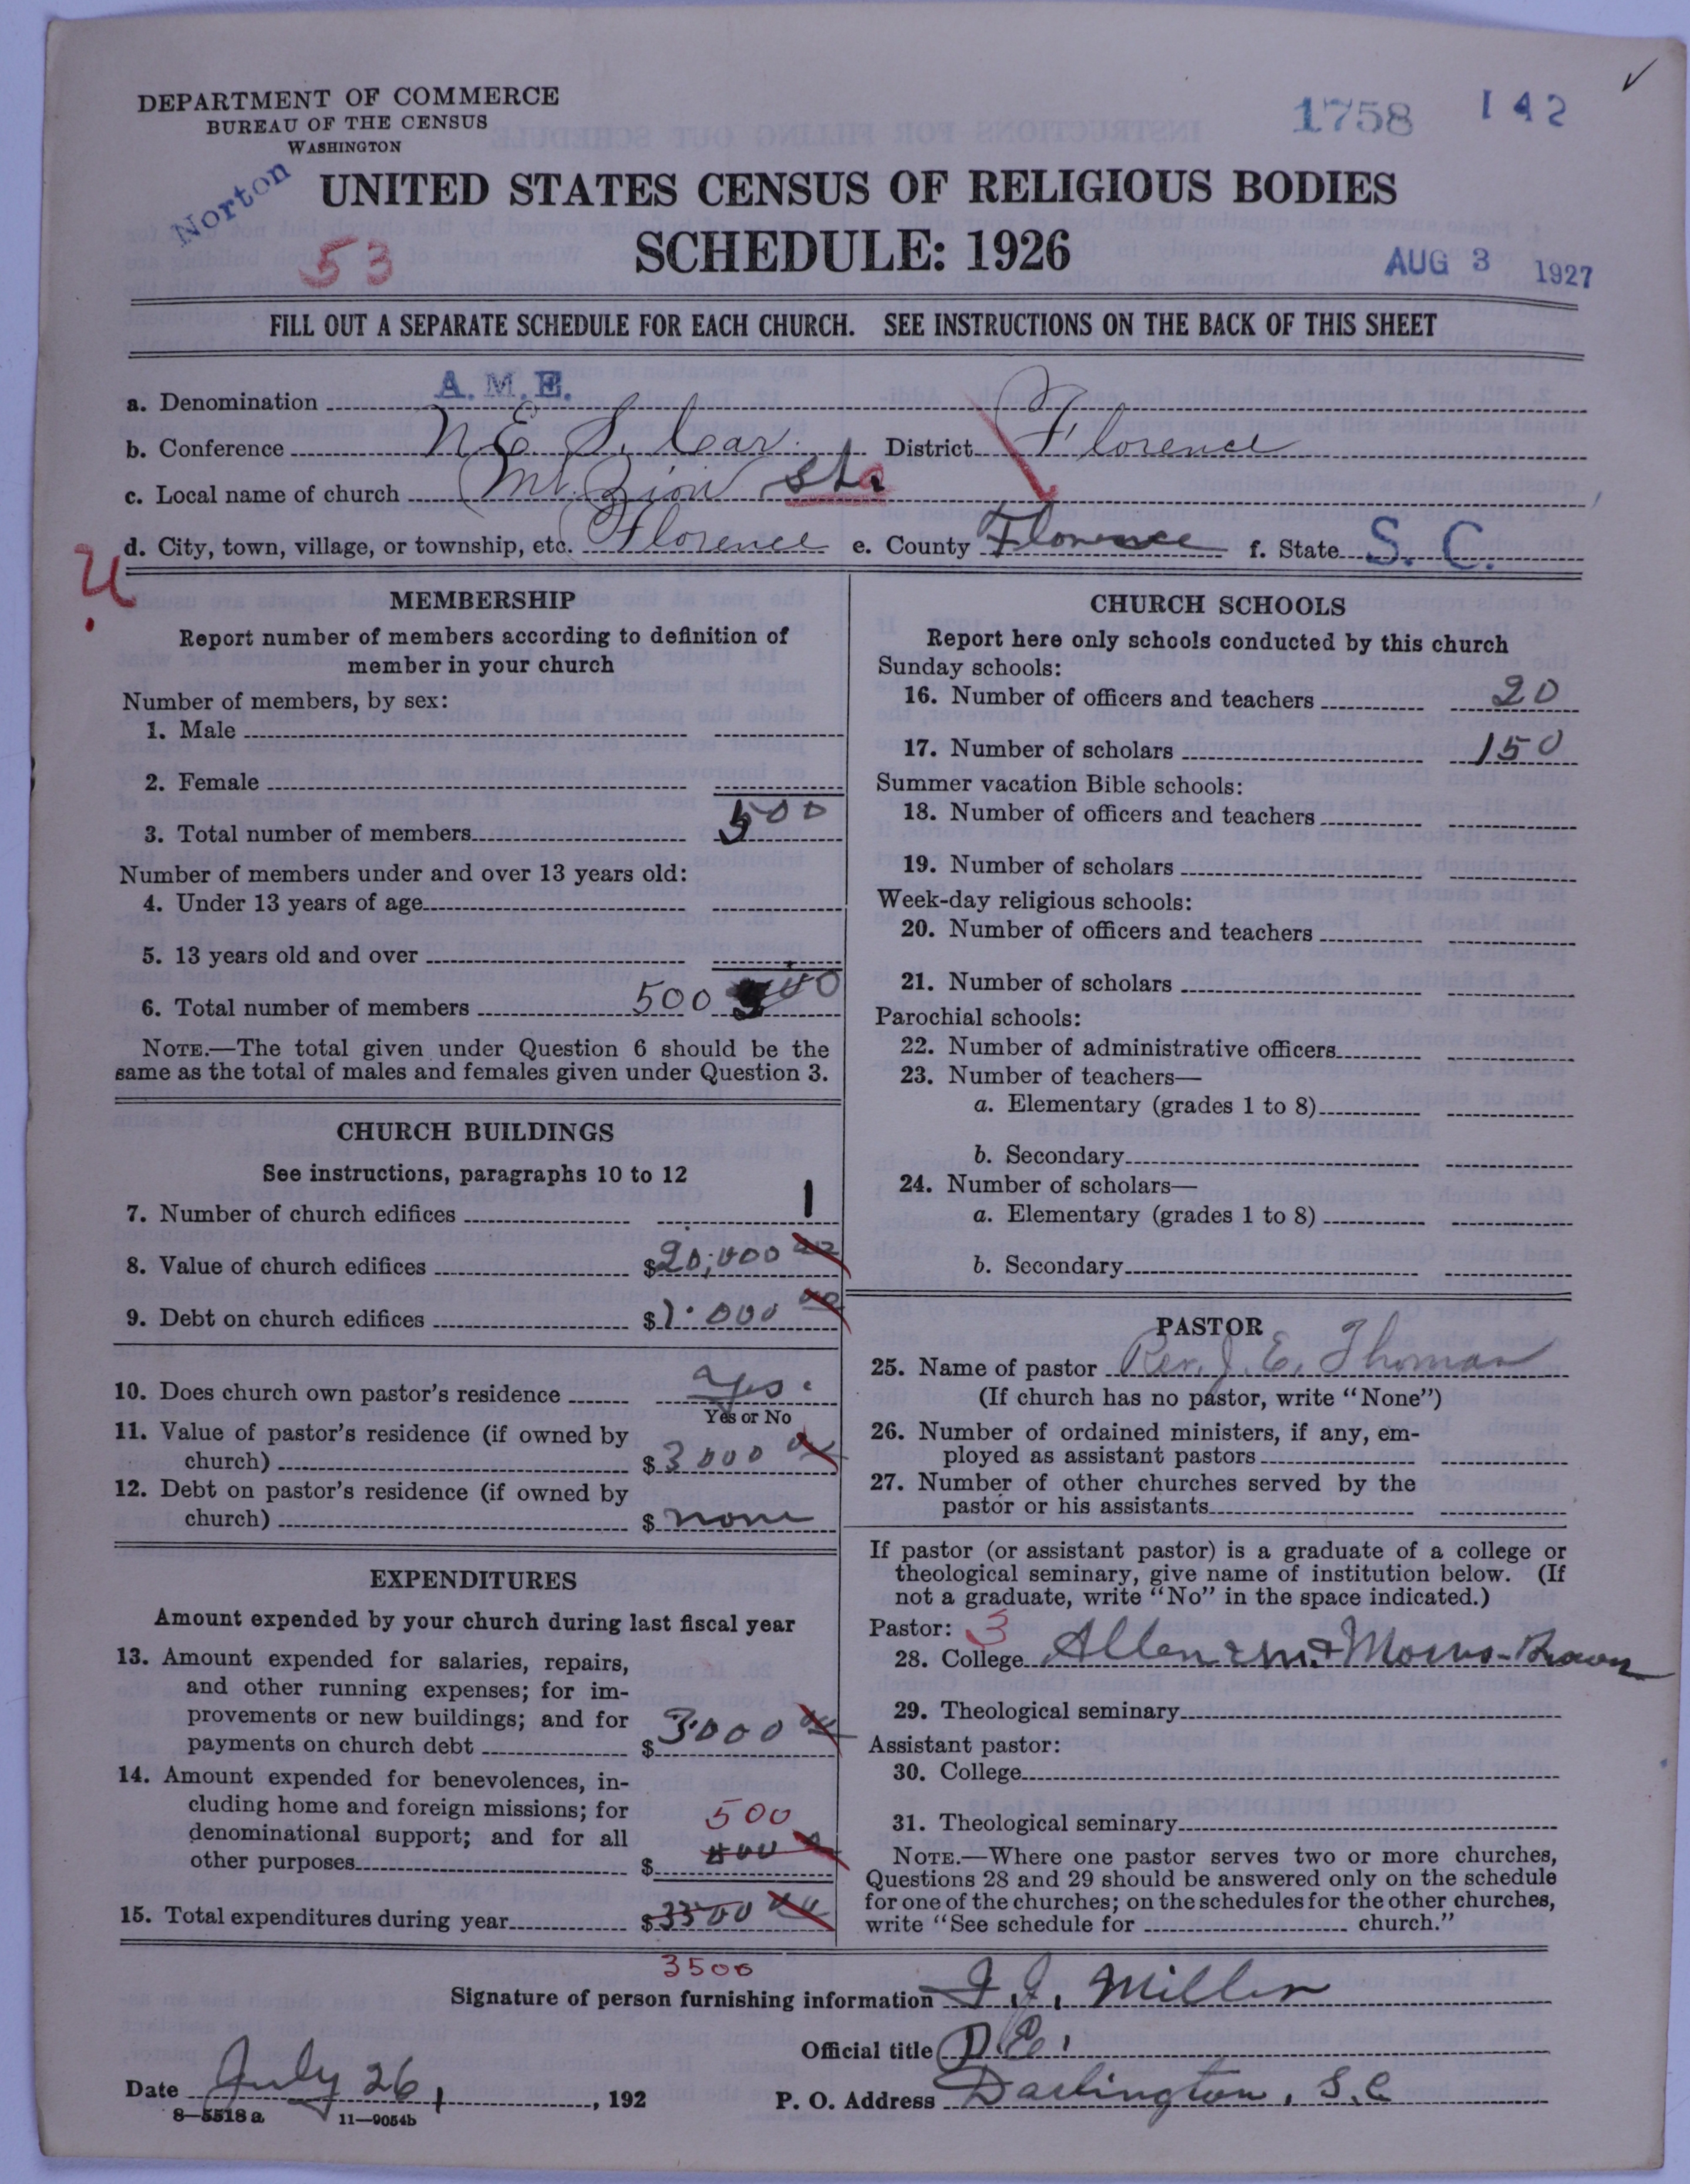 DEPARTMENT OF COMMERCE
BUREAU OF THE CENSUS
WASHINGTON
1758 142
Norton
UNITED STATES CENSUS OF RELIGIOUS BODIES
SCHEDULE: 1926
53
AUG 3 1927
FILL OUT A SEPARATE SCHEDULE FOR EACH CHURCH. SEE INSTRUCTIONS ON THE BACK OF THIS SHEET
a. Denomination A. M. E.
b. Conference N.E. S. Car. District Florence
c. Local name of church Mt. Zion Sta
d. City, town, village, or township, etc. Florence e. County Florence f. State S. C.
MEMBERSHIP
Report number of members according to definition of
member in your church
Number of members, by sex:
1. Male
2. Female
3. Total number of members 500
Number of members under and over 13 years old:
4. Under 13 years of age
5. 13 years old and over
6. Total number of members 500
NOTE.—The total given under Question 6 should be the
same as the total of males and females given under Question 3.
CHURCH BUILDINGS
See instructions, paragraphs 10 to 12
7. Number of church edifices 1
8. Value of church edifices $20,000 00
9. Debt on church edifices $1.000 00
10. Does church own pastor's residence yes.
Yes or No
11. Value of pastor's residence (if owned by
church) $3000
12. Debt on pastor's residence (if owned by
church) $ none
EXPENDITURES
Amount expended by your church during last fiscal year
13. Amount expended for salaries, repairs,
and other running expenses; for im-
provements or new buildings; and for
payments on church debt $3.000
14. Amount expended for benevolences, in-
cluding home and foreign missions; for 500
denominational support; and for all
other purposes $
15. Total expenditures during year $3500
3500
CHURCH SCHOOLS
Report here only schools conducted by this church
Sunday schools:
16. Number of officers and teachers 20
17. Number of scholars 150
Summer vacation Bible schools:
18. Number of officers and teachers
19. Number of scholars
Week-day religious schools:
20. Number of officers and teachers
21. Number of scholars
Parochial schools:
22. Number of administrative officers
23. Number of teachers—
a. Elementary (grades 1 to 8)
b. Secondary
24. Number of scholars—
a. Elementary (grades 1 to 8)
b. Secondary
PASTOR
25. Name of pastor Rev. J. E. Thomas
(If church has no pastor, write "None")
26. Number of ordained ministers, if any, em-
ployed as assistant pastors
27. Number of other churches served by the
pastor or his assistants
If pastor (or assistant pastor) is a graduate of a college or
theological seminary, give name of institution below. (If
not a graduate, write "No" in the space indicated.)
Pastor: 3
28. College Allen & Morris-Brown
29. Theological seminary
Assistant pastor:
30. College
31. Theological seminary
NOTE.—Where one pastor serves two or more churches,
Questions 28 and 29 should be answered only on the schedule
for one of the churches; on the schedules for the other churches,
write "See schedule for church."
Signature of person furnishing information I. J. Miller
Official title P. E.
Date July 26, 192 P. O. Address Darlington, S.C.
8—5518 a 11—9054b